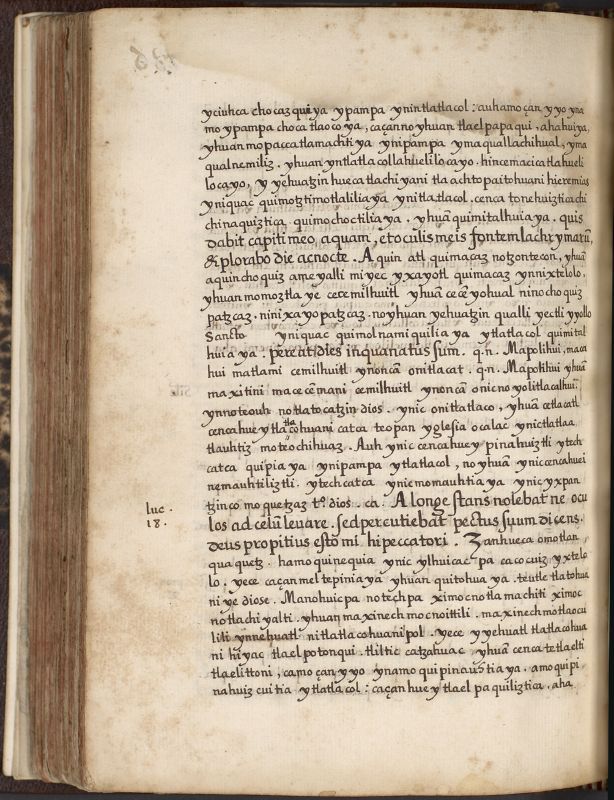 yciuhca chocaz quiya ypampa ynintlatlacol : auhamo çan yyo yna
mo ypampa choca tlaoco ya, caçan no yhuan tlael papa qui, ahahuiya,
yhuan mo pacca tlamachiti ya ynipampa yma quallachihual, yma
qualnemiliz. yhuan yntlatlacollahuelilocayo. hincemacicatlahueli
locayo, y yehuatzin huecatlachiyani tlaachtopaitohuani hieremias
yniquac quimotzimotlaliliaya ynitlatlacol. cenca tonehuiztica chi
chinaquiztica quimochoctiliaya. yhuā quimitalhuia ya. quis
dabit capiti meo aquam, et oculis meis fontem lachrymarum,
& plorabo die ac nocte. Aquin atl quimacaz notzontecon, yhuā
aquin cho quiz ameyalli miyec yxayotl quimacaz ynnixtelolo,
yhuan momoztla ye cecemilhuitl yhuā cecē yohual nino cho quiz
patzcaz. nini xayo patzcaz. noyhuan yehuatzin qualli yectli yyollo
Sancto yniquac quimolnamiquilia ya ytlatlacol quimital
huia ya. pereat dies in qua natus sum. q.n. Ma polihui, maca
hui matlami cemilhuitl ynoncā onitlacat. q.n. Ma polihui yhuā
maxitini macecēmani cemilhuitl ynoncā onicnoyolitlacalhui
ynnoteouh notlatocatzin dios. ynic onitlatlaco, yhuā cetlacatl
cencahuey tlatlacohuani catca teopan yglesia ocalac ynictlatlaa
tlauhtiz moteochihuaz. Auh ynic cencahuey pinahuiztli ytech
catca quipiya ynipampa ytlatlacol, no yhuan ynic cencahuei
nemauhtiliztli. ytech catca ynicmomauhtiaya ynicyxpan
tzinco moquetzaz tº dios. ca. A longe stans nolebat nec ocu
los ad celū levare. sed percutiebat pectus suum dicens.
deus propitius esto mihi peccatori. Zanhueca omotlan
quaquetz. hamo quinequia ynic ylhuicac pa cacocuiz yxtelo
lo. yece caçan meltepiniaya yhuan quitohuaya. teutle tlatohua
ni ye diose. Manohuicpa notechpa ximocnotlamachiti ximoc
notlachiyalti. yhuan maxinechmocnoittili. maxinechmotlaocu
lili ynnehuatl nitlatlacohuani pol. yece yyehuatl tlatlacohua
ni hiyac tlaelpotonqui. tliltic catzahuac yhuā cenca tetlaelti
tlaelittoni, camo çan yyo ynamo quipinauhtiaya. amo quipi
nahuizcuitia ytlatlacol: caçan huey tlaelpaquiliztica. aha
luc.
18.